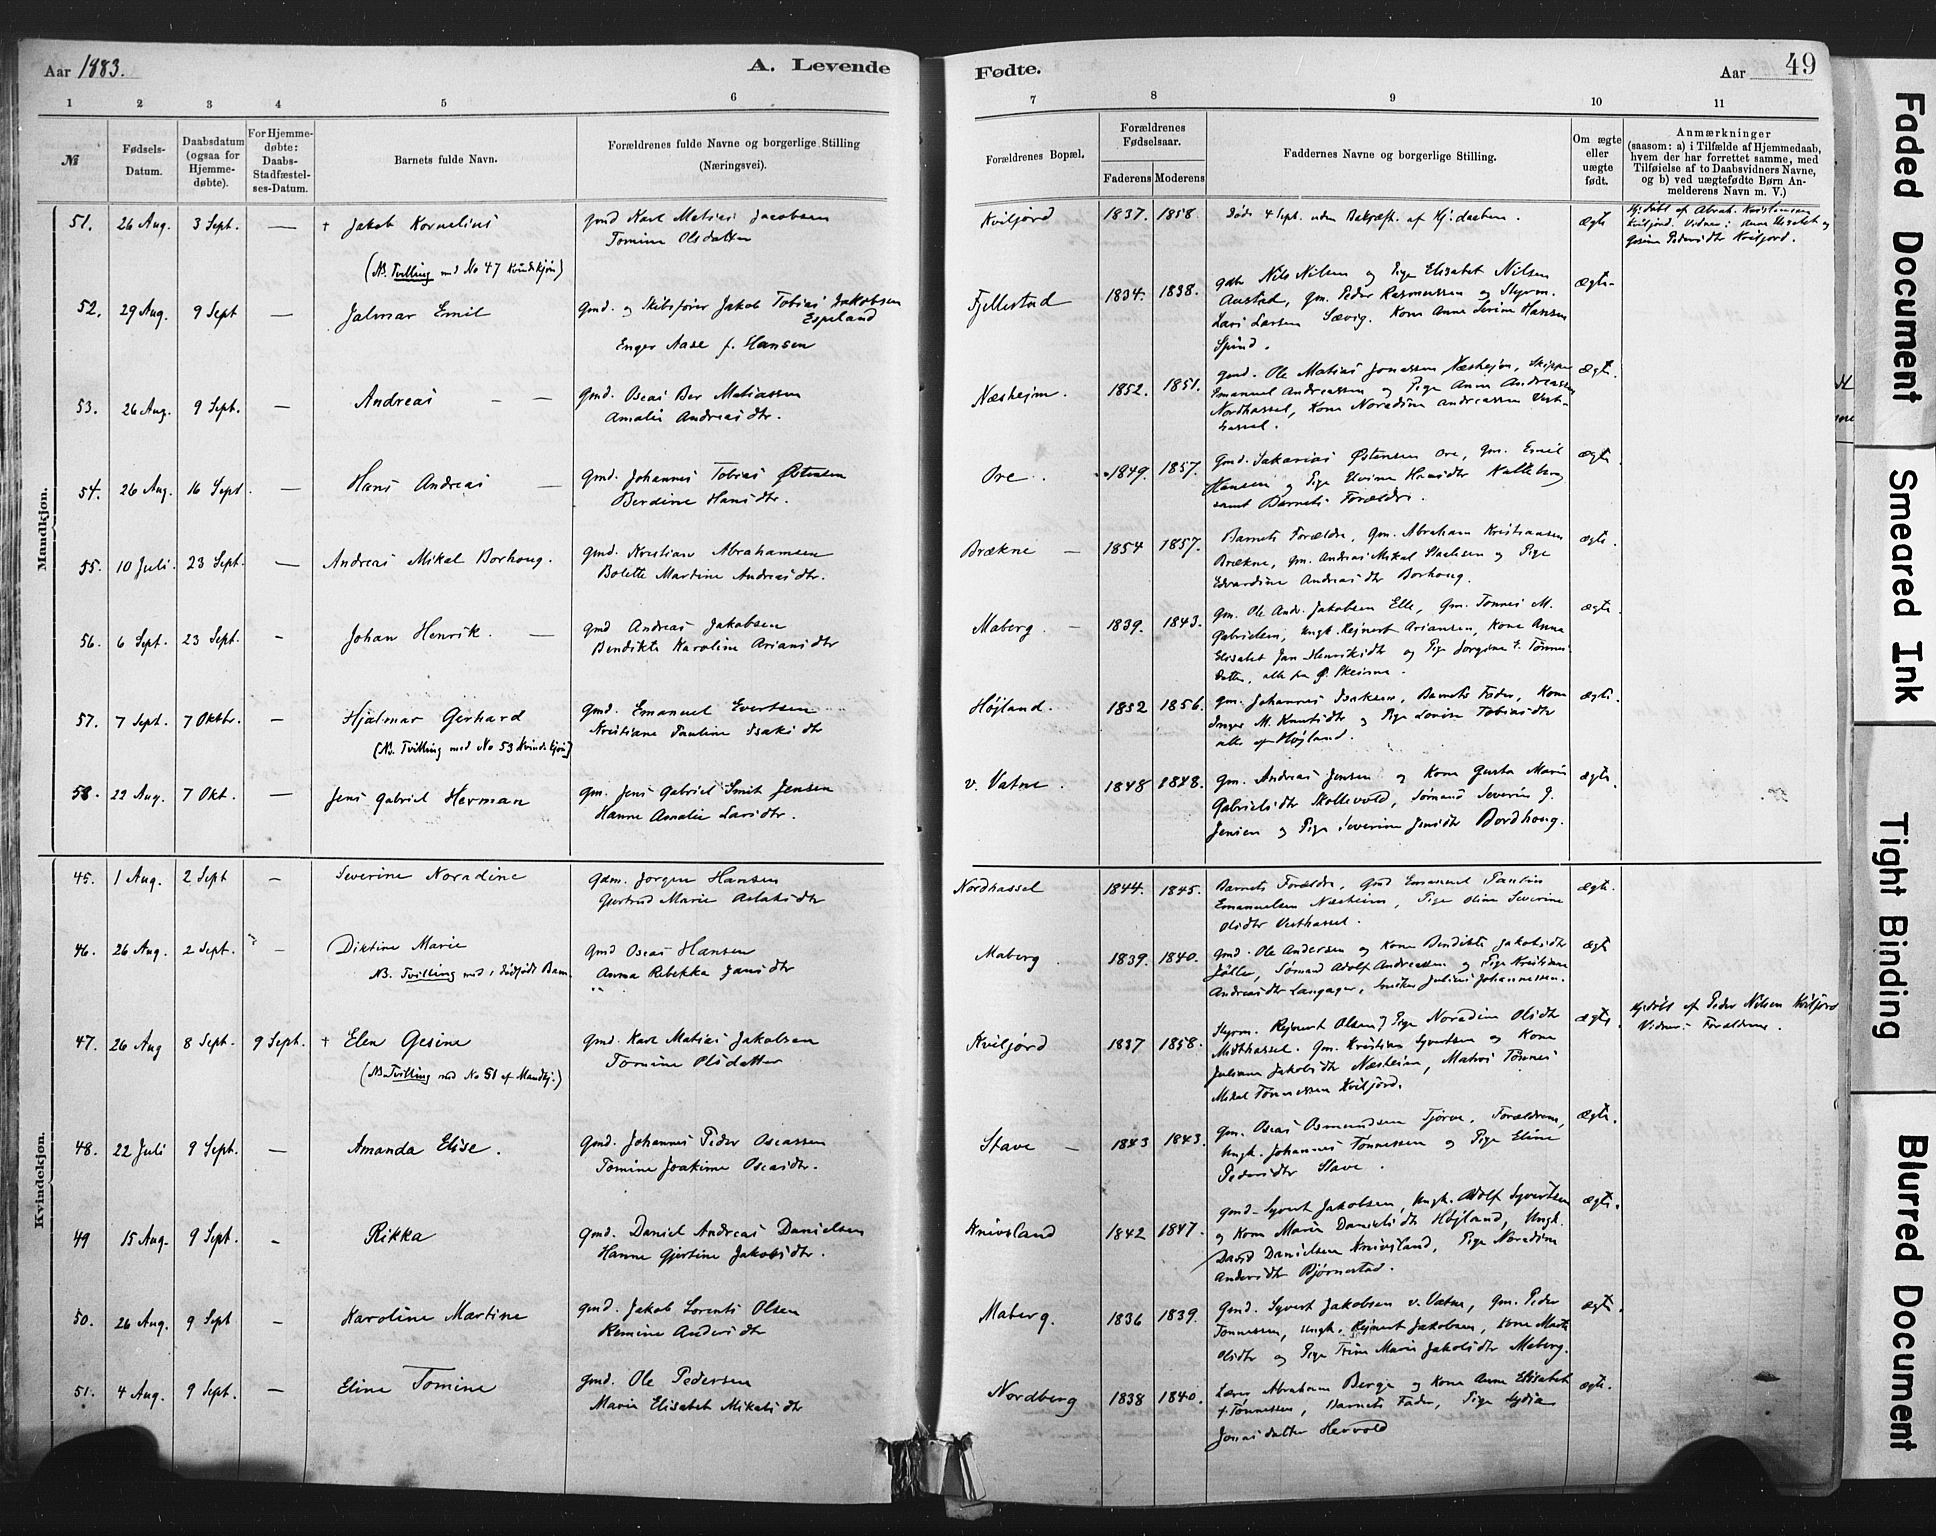 Aar 1883.
A. Levende
Fødte.
Aar
49
1 2 3 4 5 6 7 8 9 10 11
№
Fødsels-
Datum.
Daabsdatum
(ogsaa for
Hjemme-
døbte).
For Hjemme-
døbte:
Daabs-
Stadfæstel-
ses-Datum.
Barnets fulde Navn.
Forældrenes fulde Navne og borgerlige Stilling
(Næringsvei).
Forældrenes Bopæl.
Forældrenes
Fødselsaar.
Faderens Moderens
Faddernes Navne og borgerlige Stilling.
Om ægte
eller
uægte
født.
Anmærkninger
(saasom: a) i Tilfælde af Hjemmedaab,
hvem der har forrettet samme, med
Tilføielse af to Daabsvidners Navne,
og b) ved uægtefødte Børn An-
melderens Navn m. V.)
Mandkjøn.
51. 26 Aug. 3 Sept. — † Jakob Kornelius
(NB. Tvilling med No 47 Kvindekjøn)
Gmd Karl Matias Jacobsen
Tomine Olsdatter
Kviljord 1837. 1858.
Død 4 Sept. uden Bekræft. af Hj:daaben.
ægte
Hj:døbt af Abrah. Kristensen
Kviljord. Vidner: Anne Elisabet og
Gesine Pedersdtr Kviljord.
52. 29 Aug. 9 Sept — Jalmar Emil
Gmd. og Skibsfører Jakob Tobias Jakobsen
Espeland
Enger Aase f. Hansen
Fjellestad 1834. 1838.
Gdb Nils Nilsen og Pige Elisabet Nilsen
Austad, Gm. Peder Rasmussen og Styrm.
Lars Larsen Sævig. Kone Anne Serine Hansen
Spind.
ægte
53. 26 Aug. 9 Sept. — Andreas — —
Gmd. Oseas Ber Matiassen
Amalie Andreasdtr.
Næsheim. 1852. 1851.
Gmd. Ole Matias Jonassen Næsheim, Skipper
Emanuel Andreassen og Pige Anna Andreassen
Nordhassel, Kone Noradine Andreassen Vest-
hassel.
ægte.
54. 26 Aug. 16 Sept. — Hans Andreas —
Gmd. Johannes Tobias Østensen
Berdine Hansdtr.
Ore. 1849. 1857.
Gmd. Sakarias Østensen Ore, Gm. Emil
Hansen og Pige Elvine Hansdtr Kalleberg
samt Barnets Forældre.
ægte
55. 10 Juli. 23 Sept. — Andreas Mikal Borhoug.
Gmd. Kristian Abrahamsen
Bolette Martine Andreasdtr.
Brækne — 1854 1857.
Barnets Forældre, Gm. Abraham Kristiansen
Brækne, Gm. Andreas Mikal og Pige
Edvardine Andreasdtr Borhoug.
ægte.
56. 6 Sept. 23 Sept. - Johan Henrik. —
Gmd Andreas Jakobsen
Bendikte Karoline Ariansdtr
Maberg. — 1839. 1843.
Gm. Ole Andr. Jakobsen Elle, Gm. Tønnes M.
Gabrielsen, Ungk. Rejnert Ariansen, Kone Anna
Elisabet Jan Henriksdtr og Pige Jorgine T. Tønnes
datter, alle fra Ø. Skeime.
ægte
57. 7 Sept. 7 Oktbr. - Hjalmar Gerhard
(NB. Tvilling med No 53 Kvindekjøn)
Gmd. Emanuel Evertsen
Kristiane Pauline Isaksdtr
Højland. 1852 1856.
Gm. Johannes Isaksen, Barnets Fader, Kone
Inger M. Knutsdtr og Pige Lovise Tobiasdtr
alle af Højland.
ægte
58. 22 Aug. 7 Okt. — Jens Gabriel Herman
Gm. Jens Gabriel Smit Jensen
Hanne Amalie Larsdtr.
v. Vatne. 1848 1848.
Gm. Andreas Jensen og Kone Gusta Marie
Gabrielsdtr Skollevold, Sømand Severin G.
Jensen og Pige Severine Jensdtr Bordhoug.
ægte.
Kvindekjøn.
45. 1 Aug. 2 Sept - Severine Noradine
Gdm. Jørgen Hansen
Gjertrud Marie Aslaksdtr
Nordhassel 1844. 1845.
Barnets Forældre, Gmd Emanuel Paulius
Emanuelsen Næsheim, Pige Oline Severine
Olsdtr Vesthassel.
ægte.
46. 26 Aug. 2 Sept. - Diktine Marie
NB. Tvilling med 1 dødfødt Barn.
Gmd Oseas Hansen
Anna Rebekka Jansdtr
Maberg. 1839. 1840.
Gmd. Ole Andersen og Kone Bendikte Jakobsdtr
Jølle, Sømand Adolf Andreassen og Pige Kristiane
Andreasdtr Langager, Julius Johannessen.
ægte
47. 26 Aug 8 Sept. 9 Sept. † Elen Gesine
(NB. Tvilling med No 51 af Mandkj.)
Gmd. Karl Matias Jakobsen
Tomine Olsdatter
Kviljord 1837 1858.
Styrm. Rejnert Olsen, Pige Noradine Olsdtr
Midthassel. Gm. Kristian Syvertsen og Kone
Juliane Jakobsdtr Næsheim, Matros Tønnes
Mikal Tønnessen Kviljord.
ægte.
Hj:døbt af Peder Nilsen Kviljord
Vidner: Forældrene.
48. 22 Juli 9 Sept. — Amanda Elise.
Gmd. Johannes Peder Oseassen
Tomine Joakime Oseasdtr.
Stave — 1843 1843.
Gm. Oseas Asmundsen Tjørve, Forældrene,
Ungk. Johannes Tønnessen og Pige Eline
Pedersdtr Stave.
ægte.
49 15 Aug. 9 Sept. - Rikka
Gmd. Daniel Andreas Danielsen
Hanne Gjertine Jakobsdtr.
Knivsland 1842 1847.
Gmd. Syvert Jakobsen, Ungk. Adolf Syvertsen
og Kone Marie Danielsdtr Højland, Ungk.
David Danielsen Knivsland, Pige Noradine
Andersdtr Bjørnestad.
ægte.
50. 26 Aug. 9 Sept - Karoline Martine
Gmd. Jakob Lorents Olsen
Remine Andersdtr
Maberg. 1836 1839.
Gmd. Syvert Jakobsen v. Vatne, Gm. Peder
Tønnessen, Ungk. Rejnert Jakobsen, Kone Marte
Olsdtr og Pige Trine Marie Jakobsdtr Maberg.
ægte.
51. 4 Aug. 9 Sept. — Eline Tomine
Gmd. Ole Pedersen
Marie Elisabet Mikalsdtr
Nordberg 1838 1840.
Lærer Abraham Berge og Kone Anne Elisabet
f. Tønnessen, Barnets Fader, Pige Lydia
Jonasdatter Hervold
ægte.
Faded Document
Smeared Ink
Tight Binding
Blurred Document